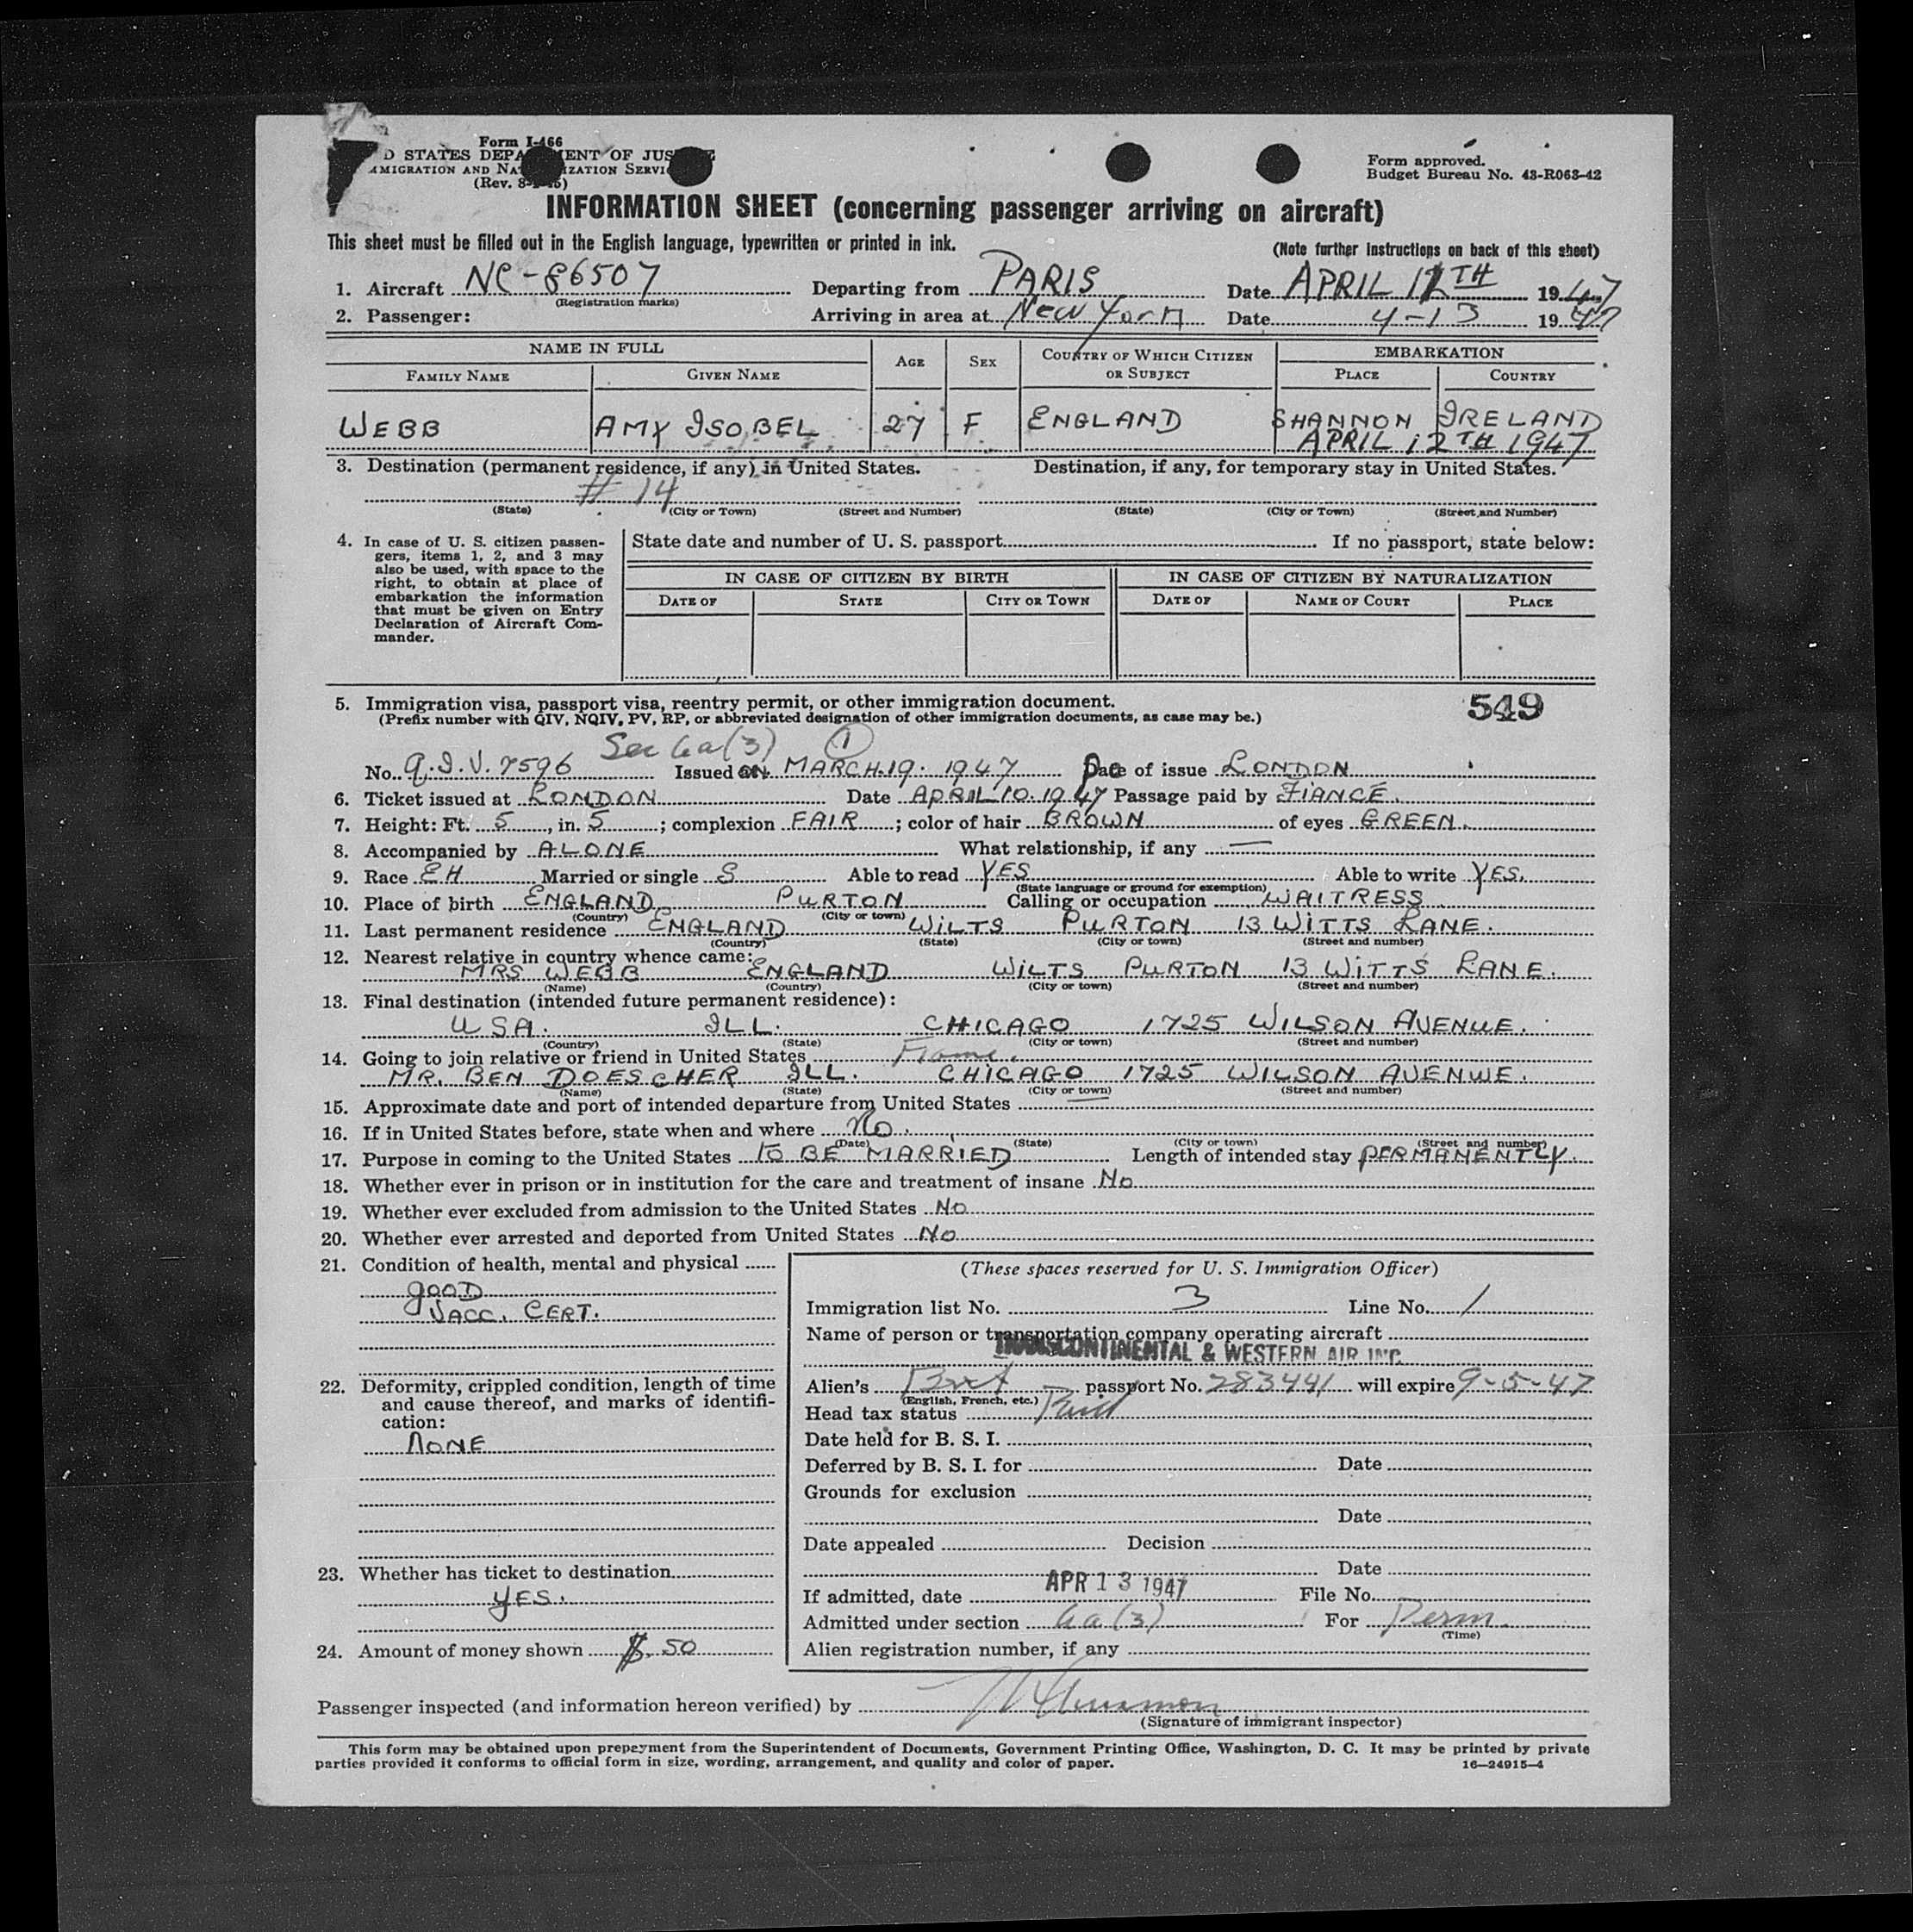 Form I-466
D STATES DEPA MENT OF JUS
MIGRATION AND NA IZATION SERVI
(Rev. 8- )
Form approved.
Budget Bureau No. 43-R063-42
INFORMATION SHEET (concerning passenger arriving on aircraft)
This sheet must be filled out in the English language, typewritten or printed in ink.
(Note further instructions on back of this sheet)
1. Aircraft NC-86507 Departing from PARIS Date APRIL 12TH 1947
(Registration marks)
2. Passenger: Arriving in area at New York Date 4-13 1947
NAME IN FULL AGE SEX COUNTRY OF WHICH CITIZEN OR SUBJECT EMBARKATION
FAMILY NAME GIVEN NAME PLACE COUNTRY
WEBB AMY ISOBEL 27 F ENGLAND SHANNON IRELAND
APRIL 12TH 1947
3. Destination (permanent residence, if any) in United States. Destination, if any, for temporary stay in United States.
# 14
(State) (City or Town) (Street and Number) (State) (City or Town) (Street and Number)
4. In case of U. S. citizen passen-
gers, items 1, 2, and 3 may
also be used, with space to the
right, to obtain at place of
embarkation the information
that must be given on Entry
Declaration of Aircraft Com-
mander.
State date and number of U. S. passport If no passport, state below:
IN CASE OF CITIZEN BY BIRTH IN CASE OF CITIZEN BY NATURALIZATION
DATE OF STATE CITY OR TOWN DATE OF NAME OF COURT PLACE
5. Immigration visa, passport visa, reentry permit, or other immigration document. 549
(Prefix number with QIV, NQIV, PV, RP, or abbreviated designation of other immigration documents, as case may be.)
Sec 6a(3) 1
No. Q.I.V. 7596 Issued ON MARCH.19. 1947 Place of issue LONDON
6. Ticket issued at LONDON Date APRIL 10. 1947 Passage paid by FIANCE.
7. Height: Ft. 5, in. 5; complexion FAIR; color of hair BROWN of eyes GREEN.
8. Accompanied by ALONE What relationship, if any —
9. Race EH Married or single S Able to read YES Able to write YES.
(State language or ground for exemption)
10. Place of birth ENGLAND PURTON Calling or occupation WAITRESS
(Country) (City or town)
11. Last permanent residence ENGLAND WILTS PURTON 13 WITTS LANE.
(Country) (State) (City or town) (Street and number)
12. Nearest relative in country whence came:
MRS WEBB ENGLAND WILTS PURTON 13 WITTS LANE.
(Name) (Country) (City or town) (Street and number)
13. Final destination (intended future permanent residence):
USA. ILL. CHICAGO 1725 WILSON AVENUE.
(Country) (State) (City or town) (Street and number)
14. Going to join relative or friend in United States
MR. BEN DOESCHER ILL. CHICAGO 1725 WILSON AVENWE.
(Name) (State) (City or town) (Street and number)
15. Approximate date and port of intended departure from United States —
16. If in United States before, state when and where No.
(Date) (State) (City or town) (Street and number)
17. Purpose in coming to the United States TO BE MARRIED Length of intended stay PERMANENTLY.
18. Whether ever in prison or in institution for the care and treatment of insane No
19. Whether ever excluded from admission to the United States No
20. Whether ever arrested and deported from United States No
21. Condition of health, mental and physical
GOOD
VACC. CERT.
22. Deformity, crippled condition, length of time
and cause thereof, and marks of identifi-
cation:
NONE
23. Whether has ticket to destination
YES.
24. Amount of money shown $.50
(These spaces reserved for U. S. Immigration Officer)
Immigration list No. 3 Line No. 1
Name of person or transportation company operating aircraft
TRANSCONTINENTAL & WESTERN AIR INC.
Alien's Brit passport No. 283441 will expire 9-5-47
(English, French, etc.)
Head tax status Paid
Date held for B. S. I.
Deferred by B. S. I. for Date
Grounds for exclusion
Date
Date appealed Decision
Date
If admitted, date APR 13 1947 File No.
Admitted under section 6a(3) For Perm.
(Time)
Alien registration number, if any
Passenger inspected (and information hereon verified) by
(Signature of immigrant inspector)
This form may be obtained upon prepayment from the Superintendent of Documents, Government Printing Office, Washington, D. C. It may be printed by private
parties provided it conforms to official form in size, wording, arrangement, and quality and color of paper. 16—24915-4